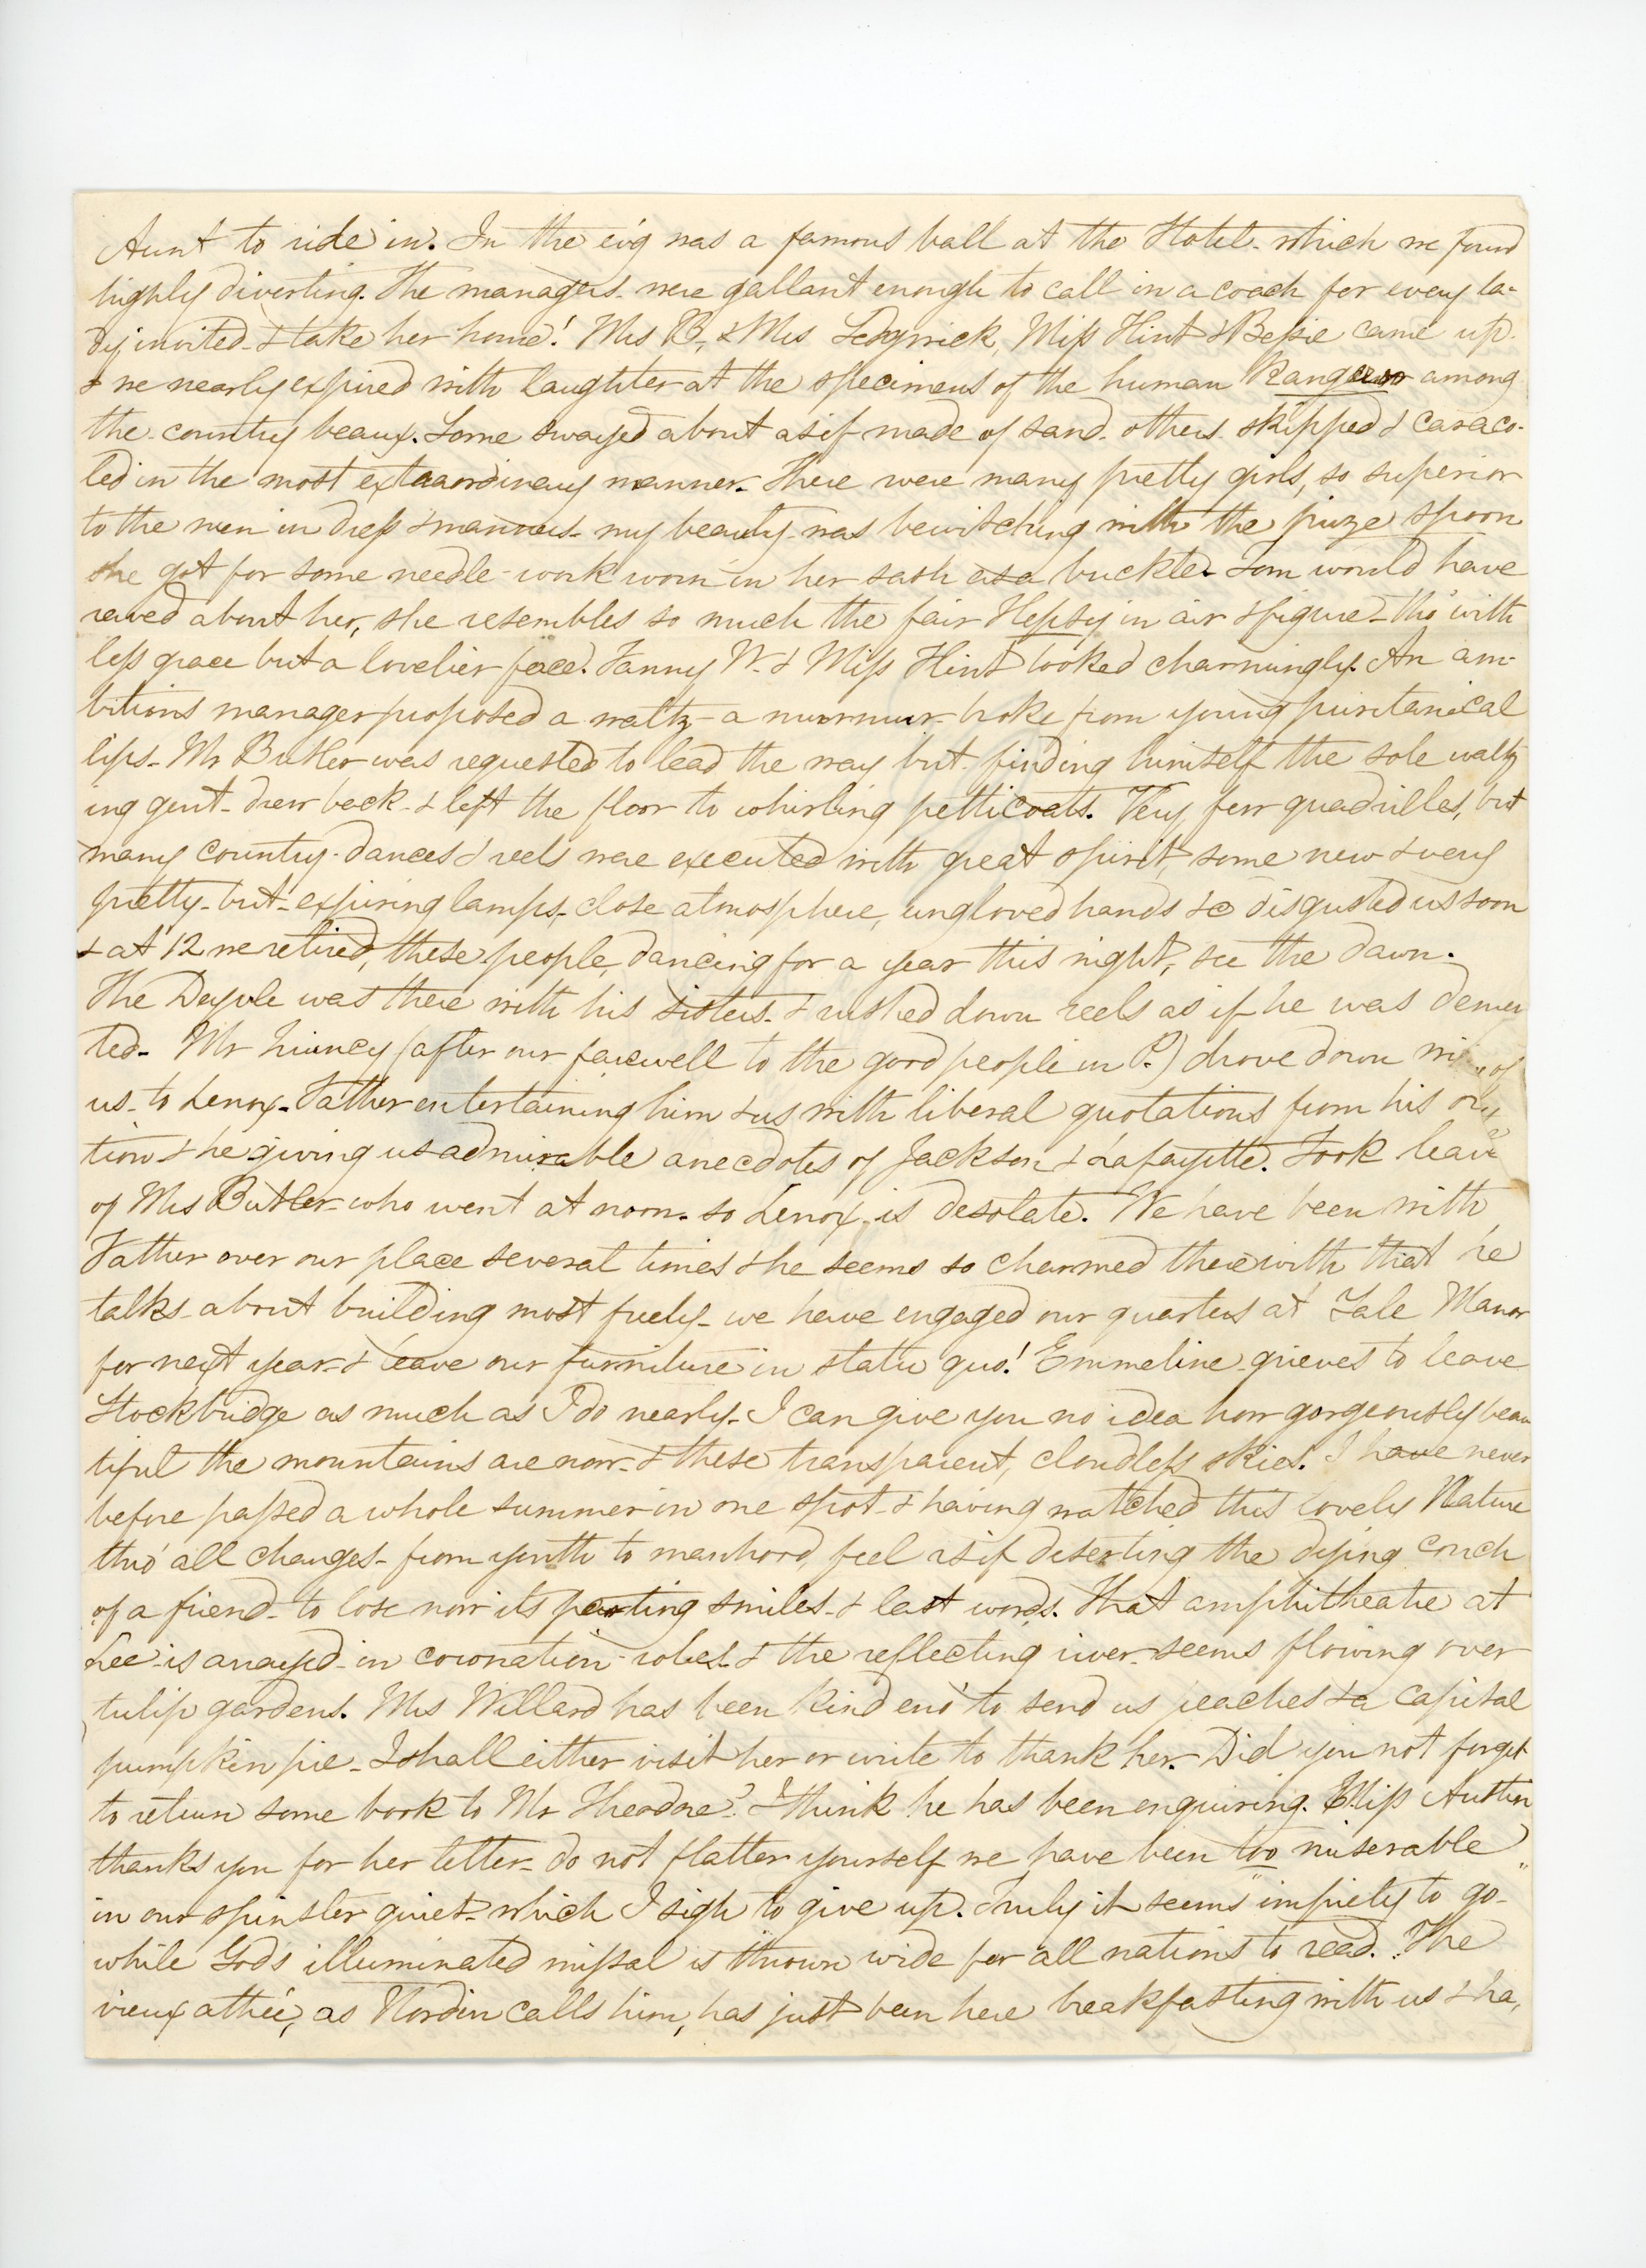 Aunt to ride in. In the ev'g was a famous ball at the Hotel - which we found
highly diverting. The managers - were gallant enough to call in a coach for every la-
dy invited - & take her home! Mrs B, & Mrs Sedgwick, Miss Hint & Bessie came up -
& we nearly expired with laughter at the specimens of the human Kangaroo among
the country beaux. Some swayed about as if made of sand - others skipped & caraco-
led in the most extraordinary manner. There were many pretty girls, so superior
to the men in dress & manners - my beauty was bewitching with the prize spoon
she got for some needle-work worn in her sash as a buckle. Tom would have
raved about her, she resembles so much the fair Hepsy in air & figure - tho' with
less grace but a lovelier face. Fanny W. & Miss Hint looked charmingly. An am-
bitious manager proposed a waltz - a murmur broke from young puritanical
lips - Mr Butler was requested to lead the way but finding himself the sole waltz
ing gent - drew back - & left the floor to whirling petticoats. Very few quadrilles, but
many country-dances & reels were executed with great spirit, some new & very
pretty - but - expiring lamps, close atmosphere, ungloved hands &c disgusted us soon
& at 12 we retired, these people, dancing for a year this night, see the dawn.
The was there with his sisters - & rushed down reels as if he was demen
ted - Mr (after our farewell to the good people in P.) drove down of
us - to Lenox - Father entertaining him & us with liberal quotations from his ora
tion & he giving us admirable anecdotes of Jackson & Lafayette. Took leave
of Mrs Butler - who went at noon - so Lenox is desolate. We have been with
Father over our place several times & he seems so charmed therewith that he
talks about building most freely - we have engaged our quarters at Yale Manor
for next year - & leave our furniture in statu quo! Emmeline grieves to leave
Stockbridge as much as I do nearly - I can give you no idea how gorgeously beau
tiful the mountains are now - & these transparent, cloudless skies. I have never
before passed a whole summer in one spot - & having watched this lovely Nature
thro' all changes - from youth to manhood, feel as if deserting the dying couch
of a friend - to lose now its parting smiles - & last words. That amphitheatre at
Lee is arrayed in coronation-robes - & the reflecting river seems flowing over
tulip gardens. Mrs Willard has been kind eno' to send us peaches & a capital
pumpkin pie - I shall either visit her or write to thank her. Did you not forget
to return some book to Mr Theodore? I think he has been enquiring. Miss Austin
thanks you for her letter - do not flatter yourself we have been too miserable
in our spinster quiet - which I sigh to give up. Truly it seems "impiety to go" -
while God's illuminated missal is thrown wide for all nations to read. The
vieux athée, as Nordin calls him, has just been here breakfasting with us & ha,